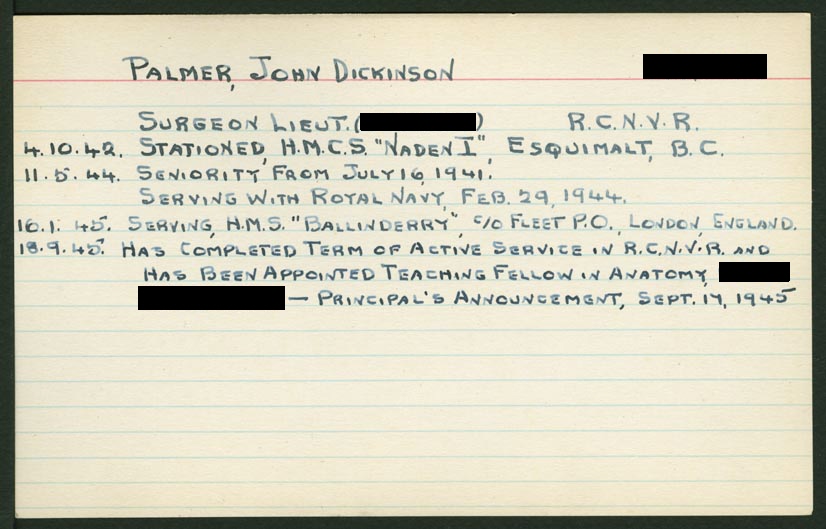 PALMER, JOHN DICKINSON
SURGEON LIEUT. ( ) R.C.N.V.R.
4.10.42. STATIONED, H.M.C.S. "NADEN I", ESQUIMALT, B.C.
11.5.44. SENIORITY FROM JULY 16, 1941.
SERVING WITH ROYAL NAVY, FEB. 29, 1944.
16.1.45. SERVING, H.M.S. "BALLINDERRY", c/o FLEET P.O., LONDON, ENGLAND.
18.9.45. HAS COMPLETED TERM OF ACTIVE SERVICE IN R.C.N.V.R. AND
HAS BEEN APPOINTED TEACHING FELLOW IN ANATOMY,
— PRINCIPAL'S ANNOUNCEMENT, SEPT. 17, 1945